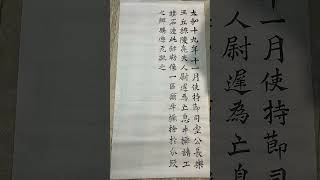 太和十九年十一月使持節司空公長樂
王丘穆陵亮夫人尉遲為亡息牛橛請工
鏤石造此彌勒像一區願牛橛捨於分段
之鄉騰遊无礙之
十一月使持節司
夫人尉遲為亡息